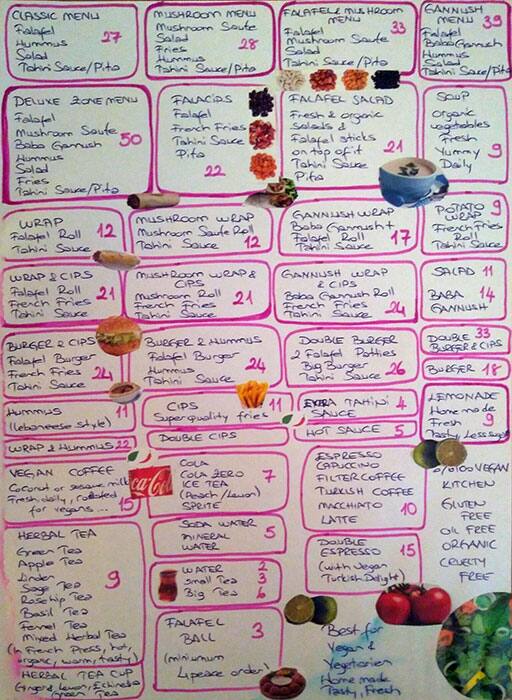 CLASSIC MENU
Falafel
Hummus
Salad
Tahini Sauce/Pita
27
MUSHROOM MENU
Mushroom Saute
Salad
Fries
Hummus
Tahini Sauce/Pita
28
FALAFEL & MUSHROOM
MENU
Falafel
Mushroom Saute
Salad
Tahini Sauce/Pita
33
GANNUSH
MENU
Falafel
Baba Gannush
Hummus
Salad
Tahini Sauce/Pita
39
DELUXE ZONE MENU
Falafel
Mushroom Saute
Baba Gannush
Hummus
Salad
Fries
Tahini Sauce/Pita
50
FALACIPS
Falafel
French Fries
Tahini Sauce
Pita
22
FALAFEL SALAD
Fresh & organic
Salads &
Falafel sticks
on top of it
Tahini Sauce
Pita
21
SOUP
Organic
vegetables
Fresh
Yummy
Daily
9
WRAP
Falafel Roll
Tahini Sauce
12
MUSHROOM WRAP
Mushroom Saute Roll
Tahini Sauce
12
GANNUSH WRAP
Baba Gannush+
Falafel Roll
Tahini Sauce
17
POTATO
WRAP
French Fries
Roll
Tahini Sauce
9
WRAP & CIPS
Falafel Roll
French Fries
Tahini Sauce
21
MUSHROOM WRAP &
CIPS
Mushroom Roll
French Fries
Tahini Sauce
21
GANNUSH WRAP
& CIPS
Baba Gannush Roll
French Fries
Tahini Sauce
24
SALAD 11
BABA
GANNUSH
14
BURGER & CIPS
Falafel Burger
French Fries
Tahini Sauce
24
BURGER & HUMMUS
Falafel Burger
Hummus
Tahini Sauce
24
DOUBLE BURGER
2 Falafel Patties
Big Burger
Tahini Sauce
26
DOUBLE 33
BURGER & CIPS
BURGER 18
HUMMUS
(lebaneese style)
11
CIPS
Superquality fries
11
EXTRA TAHINI
SAUCE
4
LEMONADE
Home made
Fresh
Tasty, Less sugar
9
WRAP & HUMMUS 22
DOUBLE CIPS
HOT SAUCE 5
VEGAN COFFEE
Coconut or sesame milk
Fresh daily, roasted
for vegans...
15
Coca-Cola
COLA
COLA ZERO
ICE TEA
(Peach/Lemon)
SPRITE
7
ESPRESSO
CAPUCCINO
FILTER COFFEE
TURKISH COFFEE
MACCHIATO
LATTE
10
%100 VEGAN
KITCHEN
GLUTEN
FREE
OIL FREE
ORGANIC
CRUELTY
FREE
HERBAL TEA
Green Tea
Apple Tea
Linden
Sage Tea
Rosehip Tea
Basil Tea
Fennel Tea
Mixed Herbal Tea
(In French Press, hot,
organic, warm, tasty)
9
SODA WATER
MINERAL
WATER
5
DOUBLE
ESPRESSO
(with Vegan
Turkish Delight)
15
WATER 2
Small Tea 3
Big Tea 6
FALAFEL
BALL
(minimum
4 peace order)
3
Best for
Vegan &
Vegetarian
Home made
Tasty, Fresh
HERBAL TEA CUP
(Ginger, Lemon, Echinacea
Green Tea